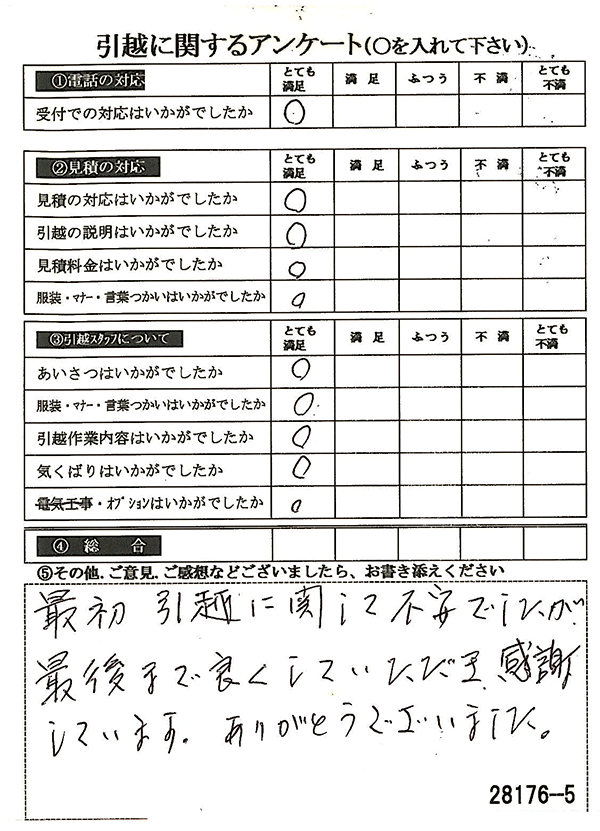 引越に関するアンケート(○を入れて下さい)
①電話の対応 とても満足 満足 ふつう 不満 とても不満
受付での対応はいかがでしたか ○
②見積の対応 とても満足 満足 ふつう 不満 とても不満
見積の対応はいかがでしたか ○
引越の説明はいかがでしたか ○
見積料金はいかがでしたか ○
服装・マナー・言葉つかいはいかがでしたか ○
③引越スタッフについて とても満足 満足 ふつう 不満 とても不満
あいさつはいかがでしたか ○
服装・マナー・言葉つかいはいかがでしたか ○
引越作業内容はいかがでしたか ○
気くばりはいかがでしたか ○
電気工事・オプションはいかがでしたか ○
④総合
⑤その他、ご意見、ご感想などございましたら、お書き添えください
最初 引越に関して不安でしたが
最後まで良くしていただき、感謝
しています。ありがとうございました。
28176-5